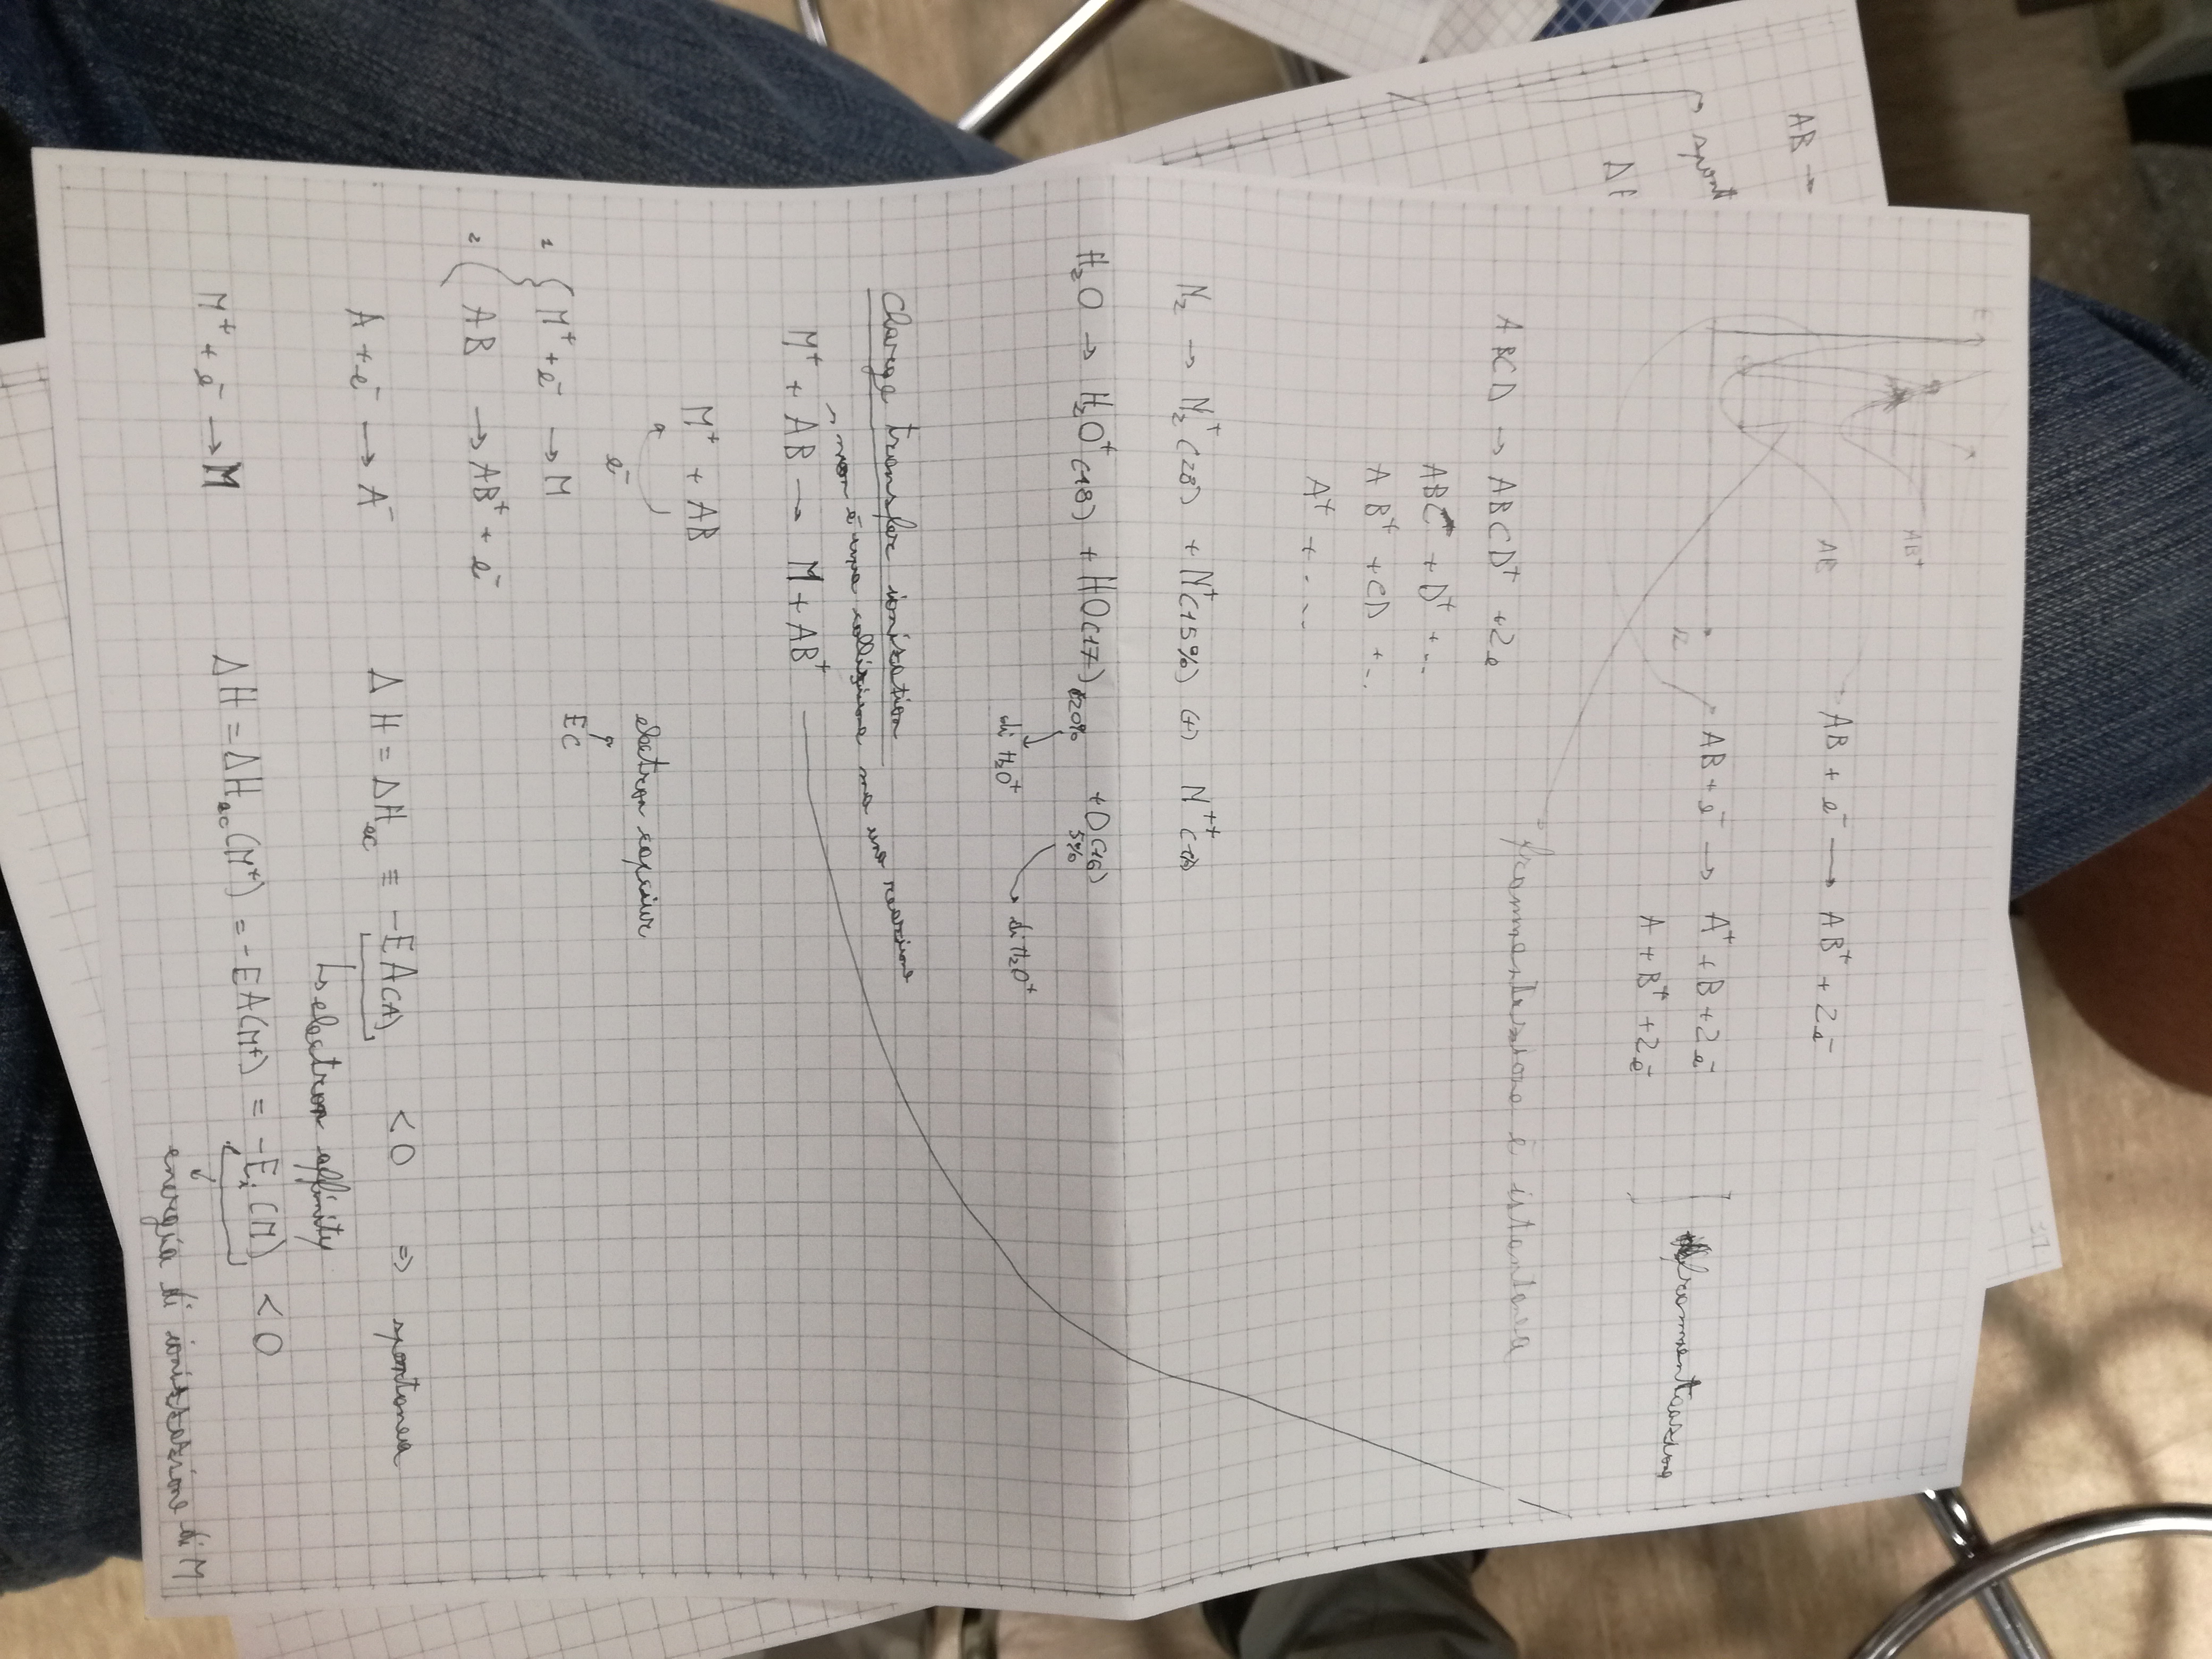 E
AB⁺
AB
r
AB + e⁻ → AB⁺ + 2e⁻
AB + e⁻ → A⁺ + B + 2e⁻
A + B⁺ + 2e⁻
frammentazione
frammentazione è istantanea
ABCD → ABCD⁺ + 2e
ABC + D⁺ + ...
AB⁺ + CD + ..
A⁺ + ...
N₂ → N₂⁺(28) + N⁺(15%)
H₂O → H₂O⁺(18) + HO(17) + O(16)
20% 5%
di H₂O⁺ di H₂O⁺
Charge transfer ionization
non è una collisione ma una reazione
M⁺ + AB → M + AB⁺
M⁺ + AB
e⁻
electron
EC
M⁺ + e⁻ → M
AB → AB⁺ + e⁻
A + e⁻ → A⁻ ΔH = ΔHec = -EA(A) < 0 ⇒ spontanea
electron affinity
M⁺ + e⁻ → M ΔH = ΔHec(M⁺) = -EA(M⁺) = -Ei(M) < 0
energia di ionizzazione di M
AB →
spont